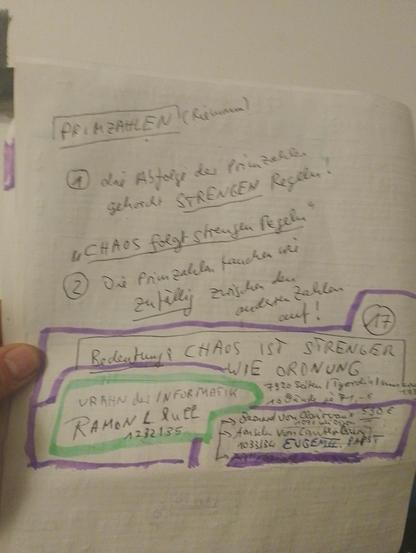 PRIMZAHLEN (Riemann)
① die Abfolge der Primzahlen
gehorcht STRENGEN Regeln!
„CHAOS folgt strengen Regeln"
② Die Primzahlen tauchen wie
zufällig zwischen den
anderen Zahlen
auf!
17
Bedeutung: CHAOS IST STRENGER
WIE ORDNUNG
URAHN der INFORMATIK
RAMON Llull
1232
7920 Seiten
10 Bände je 79,-
von Clairvaux 530 €
von Canterbury
1033/34 EUGEN III. PAPST